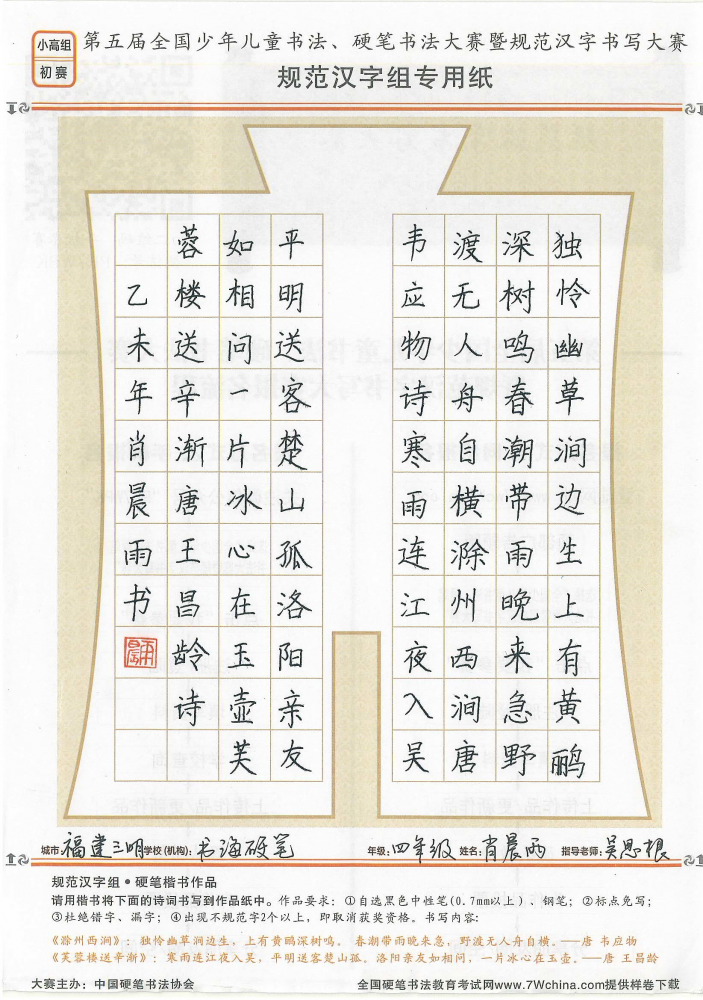 小高组
初赛
第五届全国少年儿童书法、硬笔书法大赛暨规范汉字书写大赛
规范汉字组专用纸
独怜幽草涧边生上有黄鹂
深树鸣春潮带雨晚来急野
渡无人舟自横滁州西涧唐
韦应物诗寒雨连江夜入吴
平明送客楚山孤洛阳亲友
如相问一片冰心在玉壶芙
蓉楼送辛渐唐王昌龄诗
乙未年肖晨雨书
城市:福建三明学校(机构):书海硬笔 年级:四年级 姓名:肖晨雨 指导老师:吴思根
规范汉字组●硬笔楷书作品
请用楷书将下面的诗词书写到作品纸中。作品要求：①自选黑色中性笔(0.7mm以上)、钢笔；②标点免写；
③杜绝错字、漏字；④出现不规范字2个以上，即取消获奖资格。书写内容：
《滁州西涧》：独怜幽草涧边生，上有黄鹂深树鸣。春潮带雨晚来急，野渡无人舟自横。——唐 韦应物
《芙蓉楼送辛渐》：寒雨连江夜入吴，平明送客楚山孤。洛阳亲友如相问，一片冰心在玉壶。——唐 王昌龄
大赛主办：中国硬笔书法协会 全国硬笔书法教育考试网www.7Wchina.com提供样卷下载